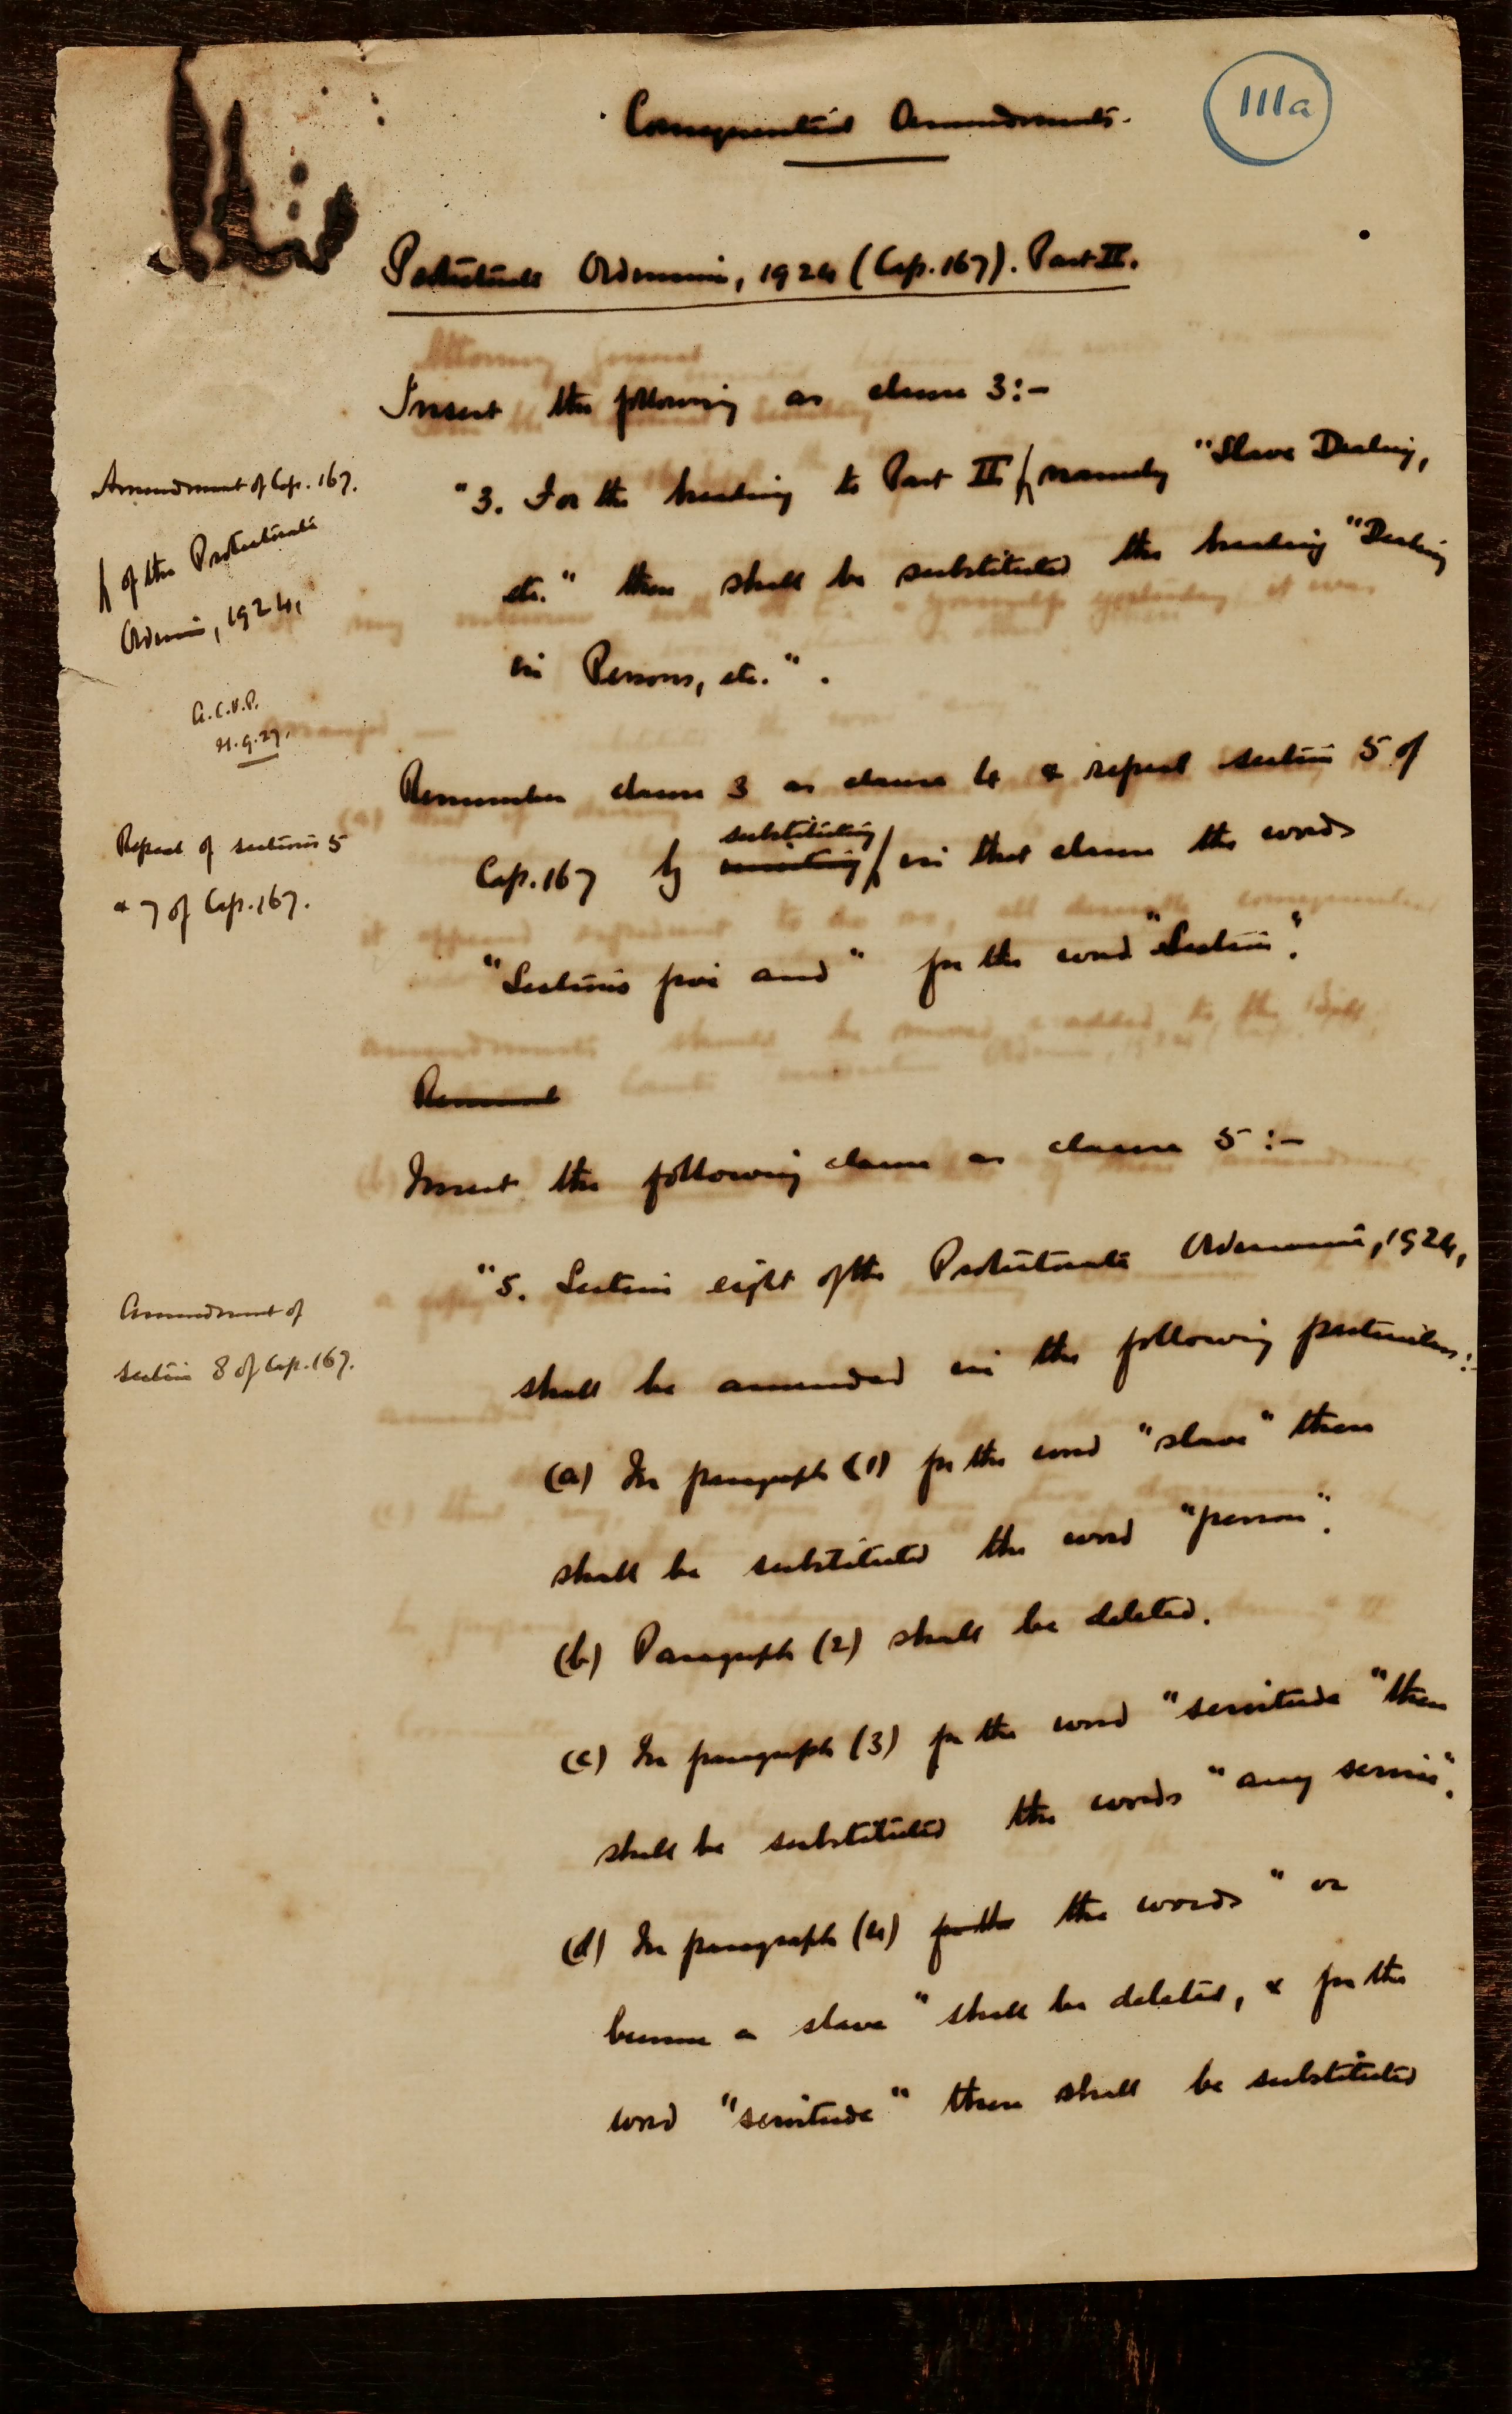 Consequential Amendments.
IIIa
Protectorate Ordinance, 1924 (Cap. 167). Part II.
Insert the following as clause 3:-
Amendment of Cap. 167.
"3. For the heading to Part II namely "Slave Dealing,
of the Protectorate
Ordinance, 1924,
etc." there shall be substituted the heading "Dealing
in Persons, etc.".
A.C.V.P.
21.9.27.
Renumber clause 3 as clause 4 & repeal section 5 of
Repeal of sections 5
& 7 of Cap. 167.
substituting
Cap. 167 by in that clause the words
"Sections five and" for the word "Section".
Insert the following clause as clause 5:-
Amendment of
section 8 of Cap. 167.
"5. Section eight of the Protectorate Ordinance, 1924,
shall be amended in the following particulars:-
(a) In paragraph (1) for the word "slave" there
shall be substituted the word "person".
(b) Paragraph (2) shall be deleted.
(c) In paragraph (3) for the word "servitude" there
shall be substituted the words "any service".
(d) In paragraph (4) for the the words "or
become a slave" shall be deleted, & for the
word "servitude" there shall be substituted